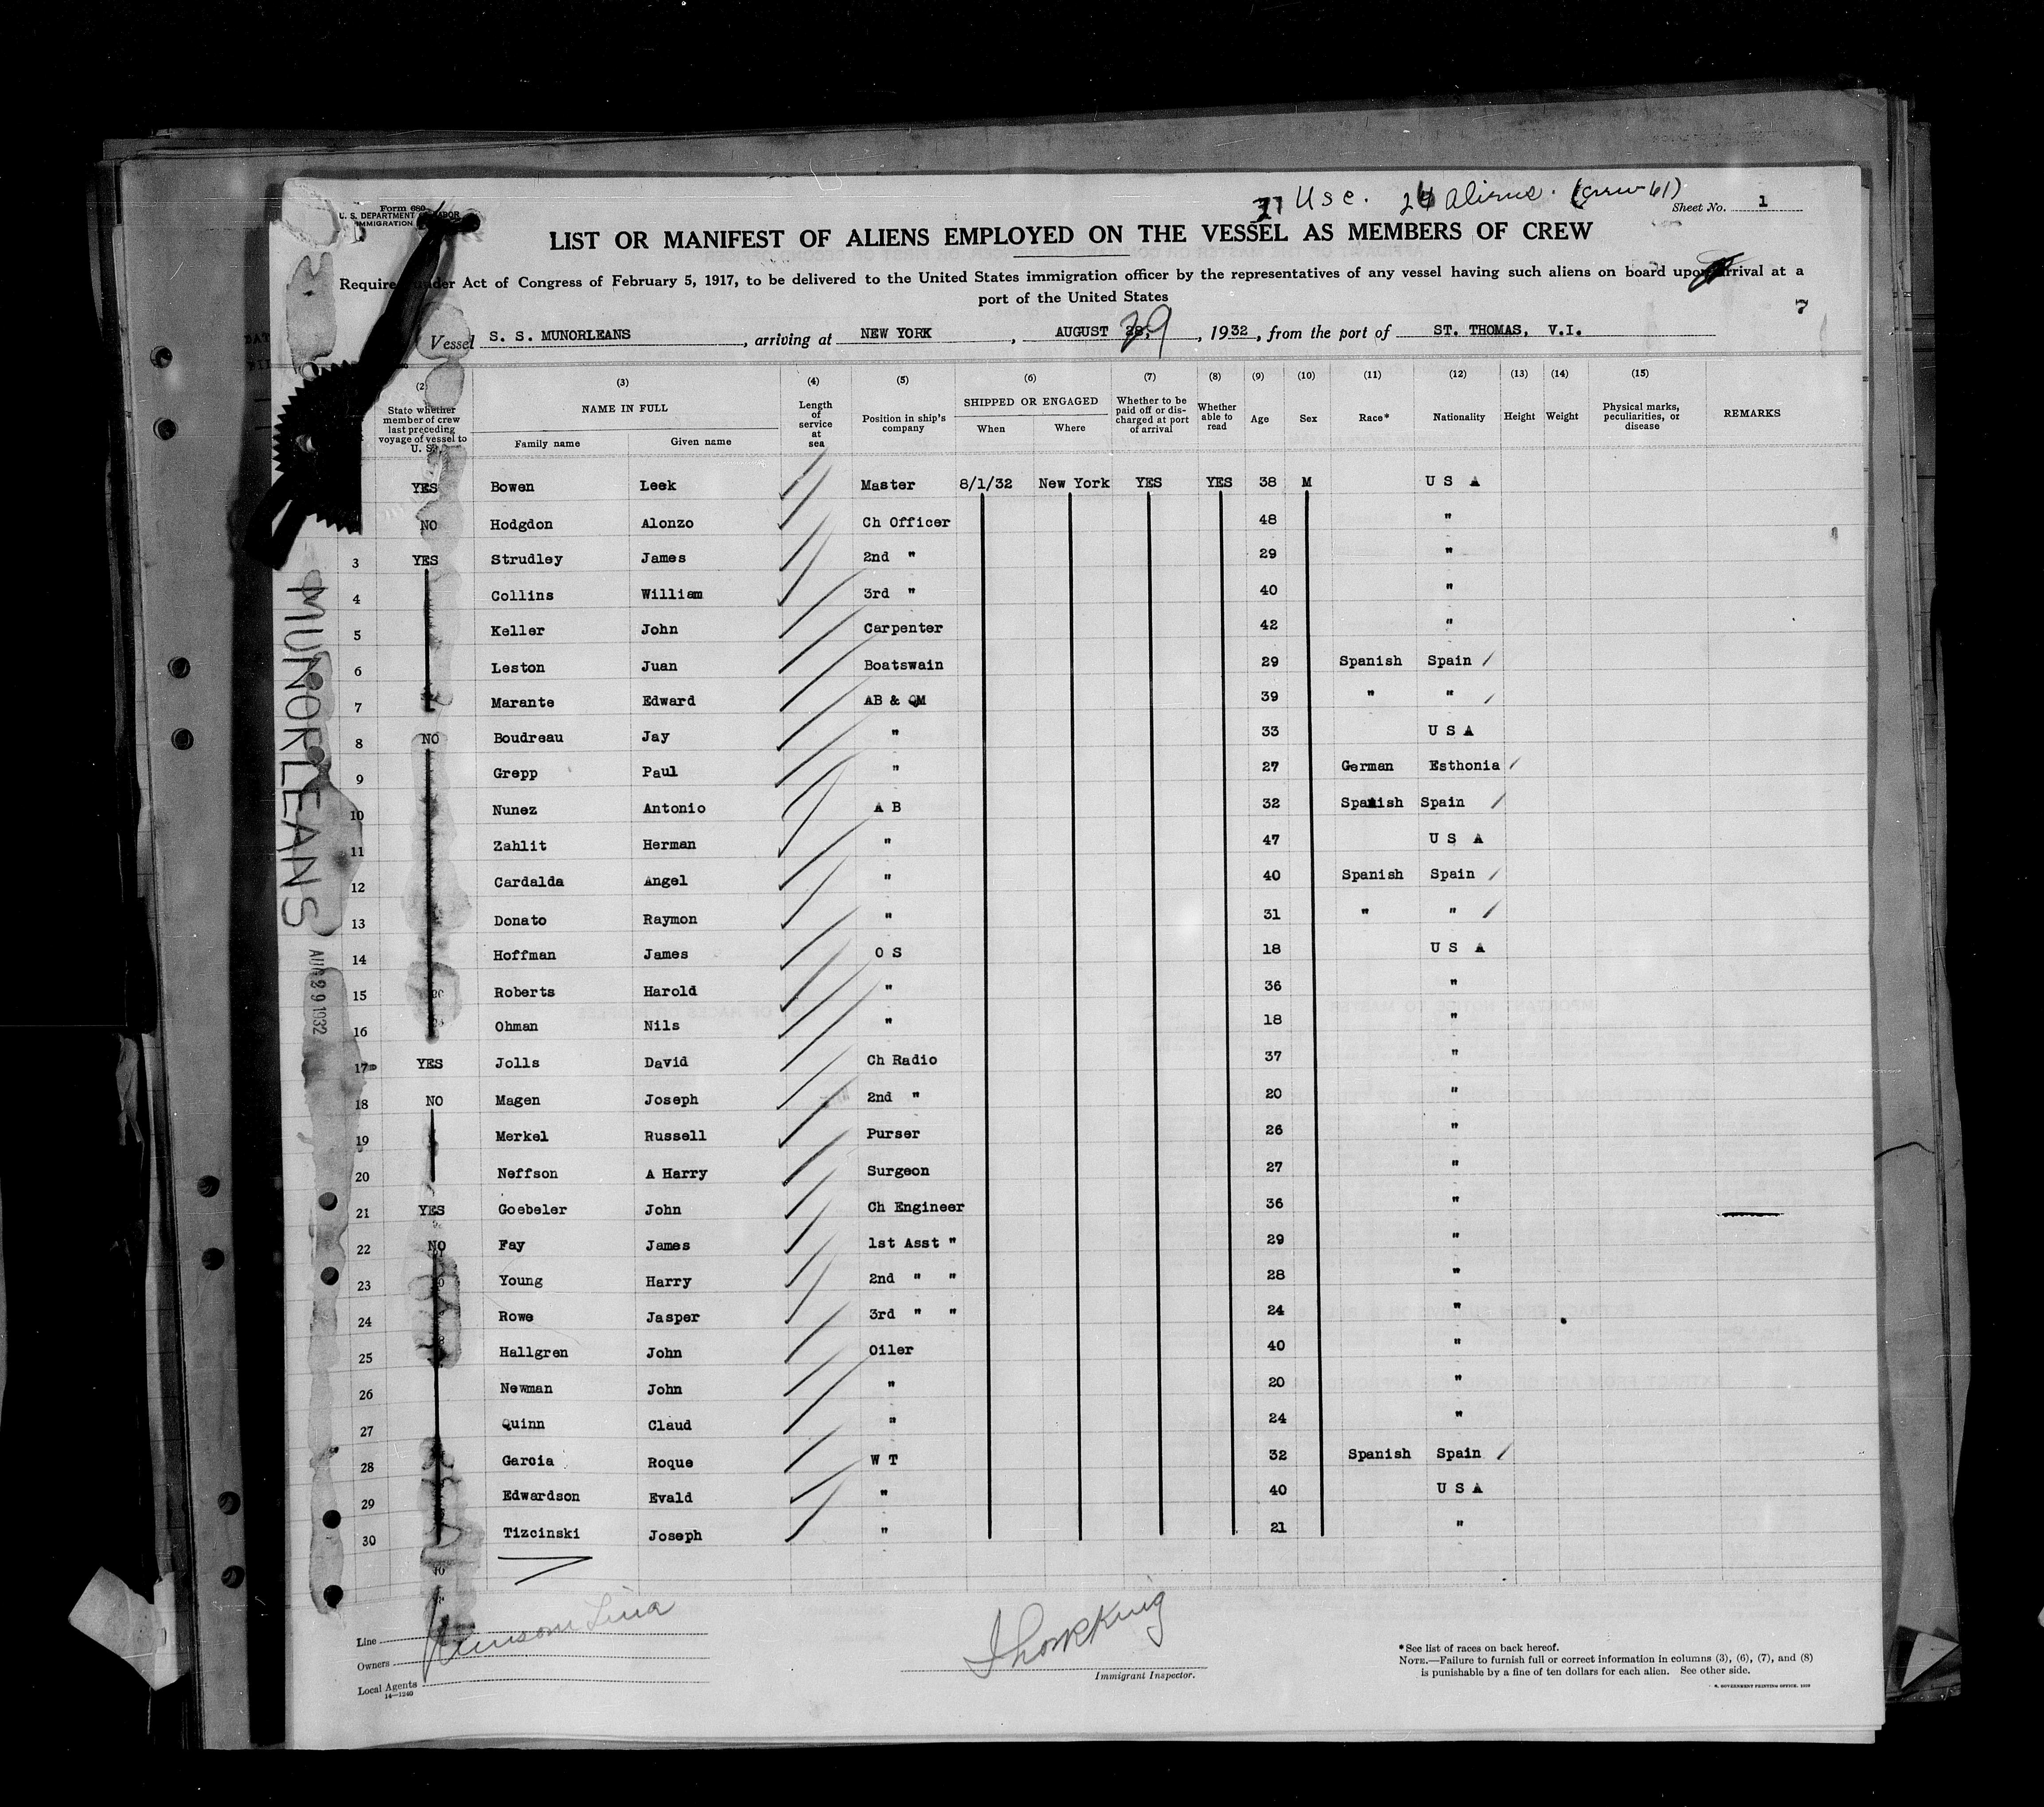 37 Usc. 24 aliens. (crew 61)
Form 680
U. S. DEPARTMENT OF LABOR
IMMIGRATION
Sheet No. 1
LIST OR MANIFEST OF ALIENS EMPLOYED ON THE VESSEL AS MEMBERS OF CREW
Required under Act of Congress of February 5, 1917, to be delivered to the United States immigration officer by the representatives of any vessel having such aliens on board upon arrival at a
port of the United States
7
Vessel S. S. MUNORLEANS, arriving at NEW YORK, AUGUST 29, 1932, from the port of ST. THOMAS, V.I.
(2) (3) (4) (5) (6) (7) (8) (9) (10) (11) (12) (13) (14) (15)
State whether member of crew last preceding voyage of vessel to U. S. NAME IN FULL Family name Given name Length of service at sea Position in ship's company SHIPPED OR ENGAGED When Where Whether to be paid off or discharged at port of arrival Whether able to read Age Sex Race* Nationality Height Weight Physical marks, peculiarities, or disease REMARKS
YES Bowen Leek Master 8/1/32 New York YES YES 38 M U S A
NO Hodgdon Alonzo Ch Officer 48 "
3 YES Strudley James 2nd " 29 "
4 Collins William 3rd " 40 "
5 Keller John Carpenter 42 "
6 Leston Juan Boatswain 29 Spanish Spain
7 Marante Edward AB & QM 39 " "
8 NO Boudreau Jay " 33 U S A
9 Grepp Paul " 27 German Esthonia
10 Nunez Antonio A B 32 Spanish Spain
11 Zahlit Herman " 47 U S A
12 Cardalda Angel " 40 Spanish Spain
13 Donato Raymon " 31 " "
14 Hoffman James O S 18 U S A
15 Roberts Harold " 36 "
16 Ohman Nils " 18 "
17 YES Jolls David Ch Radio 37 "
18 NO Magen Joseph 2nd " 20 "
19 Merkel Russell Purser 26 "
20 Neffson A Harry Surgeon 27 "
21 YES Goebeler John Ch Engineer 36 "
22 NO Fay James 1st Asst " 29 "
23 Young Harry 2nd " " 28 "
24 Rowe Jasper 3rd " " 24 "
25 Hallgren John Oiler 40 "
26 Newman John " 20 "
27 Quinn Claud " 24 "
28 Garcia Roque W T 32 Spanish Spain
29 Edwardson Evald " 40 U S A
30 Tizcinski Joseph " 21 "
MUNORLEANS
AUG 29 1932
Line
Owners Munson Line
Local Agents
14—1240
Immigrant Inspector.
*See list of races on back hereof.
NOTE.—Failure to furnish full or correct information in columns (3), (6), (7), and (8)
is punishable by a fine of ten dollars for each alien. See other side.
GOVERNMENT PRINTING OFFICE